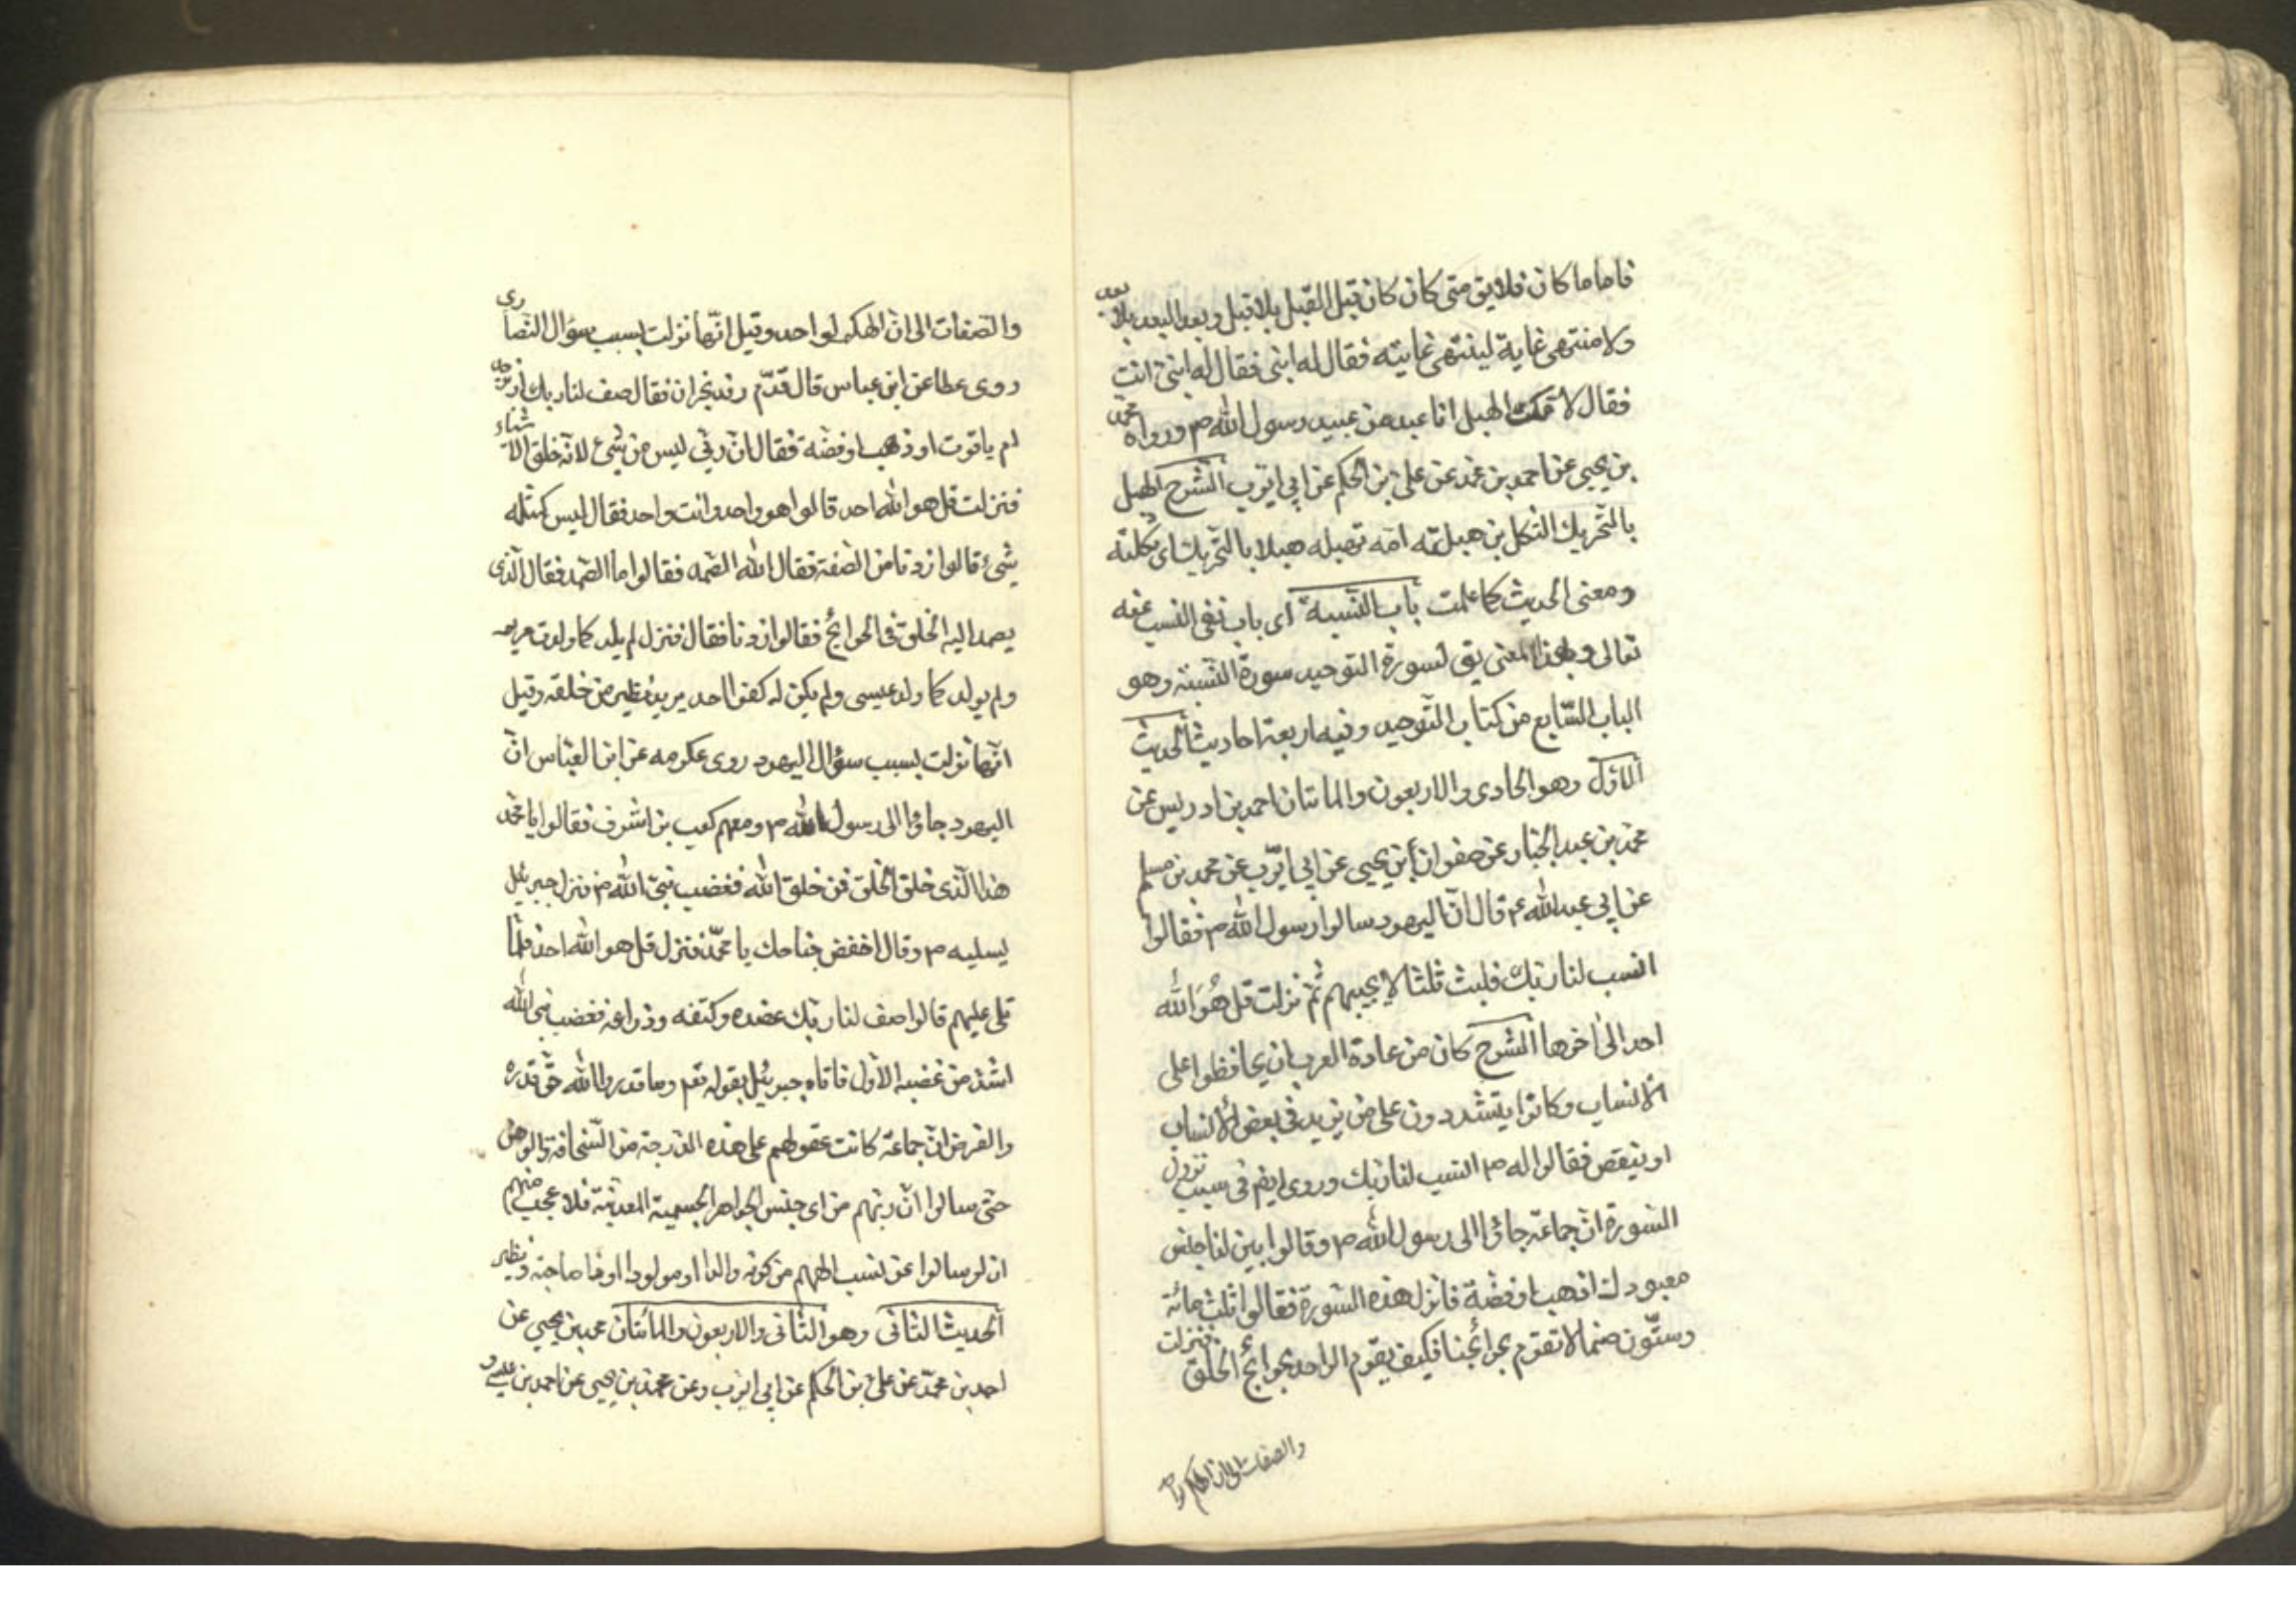 فاما ما كان فلا يق متى كان كان قبل القبل بلا قبل وبعد البعد بلا بعد
ولا منتهى غاية لينتهى غايته فقال له ابنى فقال له ابنى انت
فقال لامك الهبل انا عبد من عبيد رسول الله ص ورواه محمد
بن يحيى عن احمد بن محمد عن على بن الحكم عن ابى ايوب الشرح الهبل
بالتحريك الثكل بن هبلته امه تهبله هبلا بالتحريك اى ثكلته
ومعنى الحديث كما علمت باب النسبة اى باب نفى النسب عنه
تعالى وبهذا المعنى يق لسورة التوحيد سورة النسبة وهو
الباب السابع من كتاب التوحيد وفيه اربعة احاديث الحديث
الاول وهو الحادى والاربعون والمائتان احمد بن ادريس عن
محمد بن عبد الجبار عن صفوان بن يحيى عن ابى ايوب عن محمد بن مسلم
عن ابى عبد الله ع قال ان اليهود سالوا رسول الله ص فقالوا
انسب لنا ربك فلبث ثلثا لا يجيبهم ثم نزلت قل هُوَ الله
احد الى اخرها الشرح كان من عادة العرب ان يحافظوا على
الانساب وكانوا يتشددون على من يزيد فى بعض الانساب
او ينقص فقالوا له ص انسب لنا ربك وروى ايض فى سبب نزول
السورة ان جماعة جاؤا الى رسول الله ص وقالوا بين لنا جنس
معبودك اذهب او فضة فانزل هذه السورة فقالوا ثلث مائة
وستون صنما لا تقوم بحوائجنا فكيف يقوم الواحد بحوائج الخلق فنزلت
والصفات الى ان الهكم لواحد
والصفات الى ان الهكم لواحد وقيل انها نزلت بسبب سؤال النصارى
روى عطا عن ابن عباس قال قدم وفد نجران فقال صف لنا ربك از برجد
ام ياقوت او ذهب او فضة فقال ان ربى ليس من شئ لانه خلق الاشياء
فنزلت قل هو الله احد قالوا هو واحد وانت واحد فقال ليس كمثله
شئ قالوا زدنا من الصفة فقال الله الصمد فقالوا ما الصمد فقال الذى
يصمد اليه الخلق فى الحوائج فقالوا زدنا فقال فنزل لم يلد كما ولدت مريم
ولم يولد كما ولد عيسى ولم يكن له كفوا احد يريد نظير من خلقه وقيل
انها نزلت بسبب سؤال اليهود روى عكرمه عن ابن العباس ان
اليهود جاؤا الى رسول الله ص ومعهم كعب بن اشرف فقالوا يا محمد
هذا الذى خلق الخلق فمن خلق الله فغضب نبى الله ص فنزل جبرئيل
ليسليه ص وقال اخفض جناحك يا محمد فنزل قل هو الله احد فلما
تلى عليهم قالوا صف لنا ربك عضده وكتفه وذراعه فغضب نبى الله
اشد من غضبه الاول فاتاه جبرئيل بقوله تعم وما قدروا الله حق قدره
والغرض ان جماعة كانت عقولهم على هذه الدرجة من السخافة والوهن
حتى سالوا ان ربهم من اى جنس الجواهر الجسمية المعدنية فلا عجب منهم
ان لو سالوا عن نسب الههم من كونه والدا او مولودا او ذا صاحبة ونظير
الحديث الثانى وهو الثانى والاربعون والمائتان محمد بن يحيى عن
احمد بن محمد عن على بن الحكم عن ابى ايوب وعن محمد بن يحيى عن احمد بن عيسى و